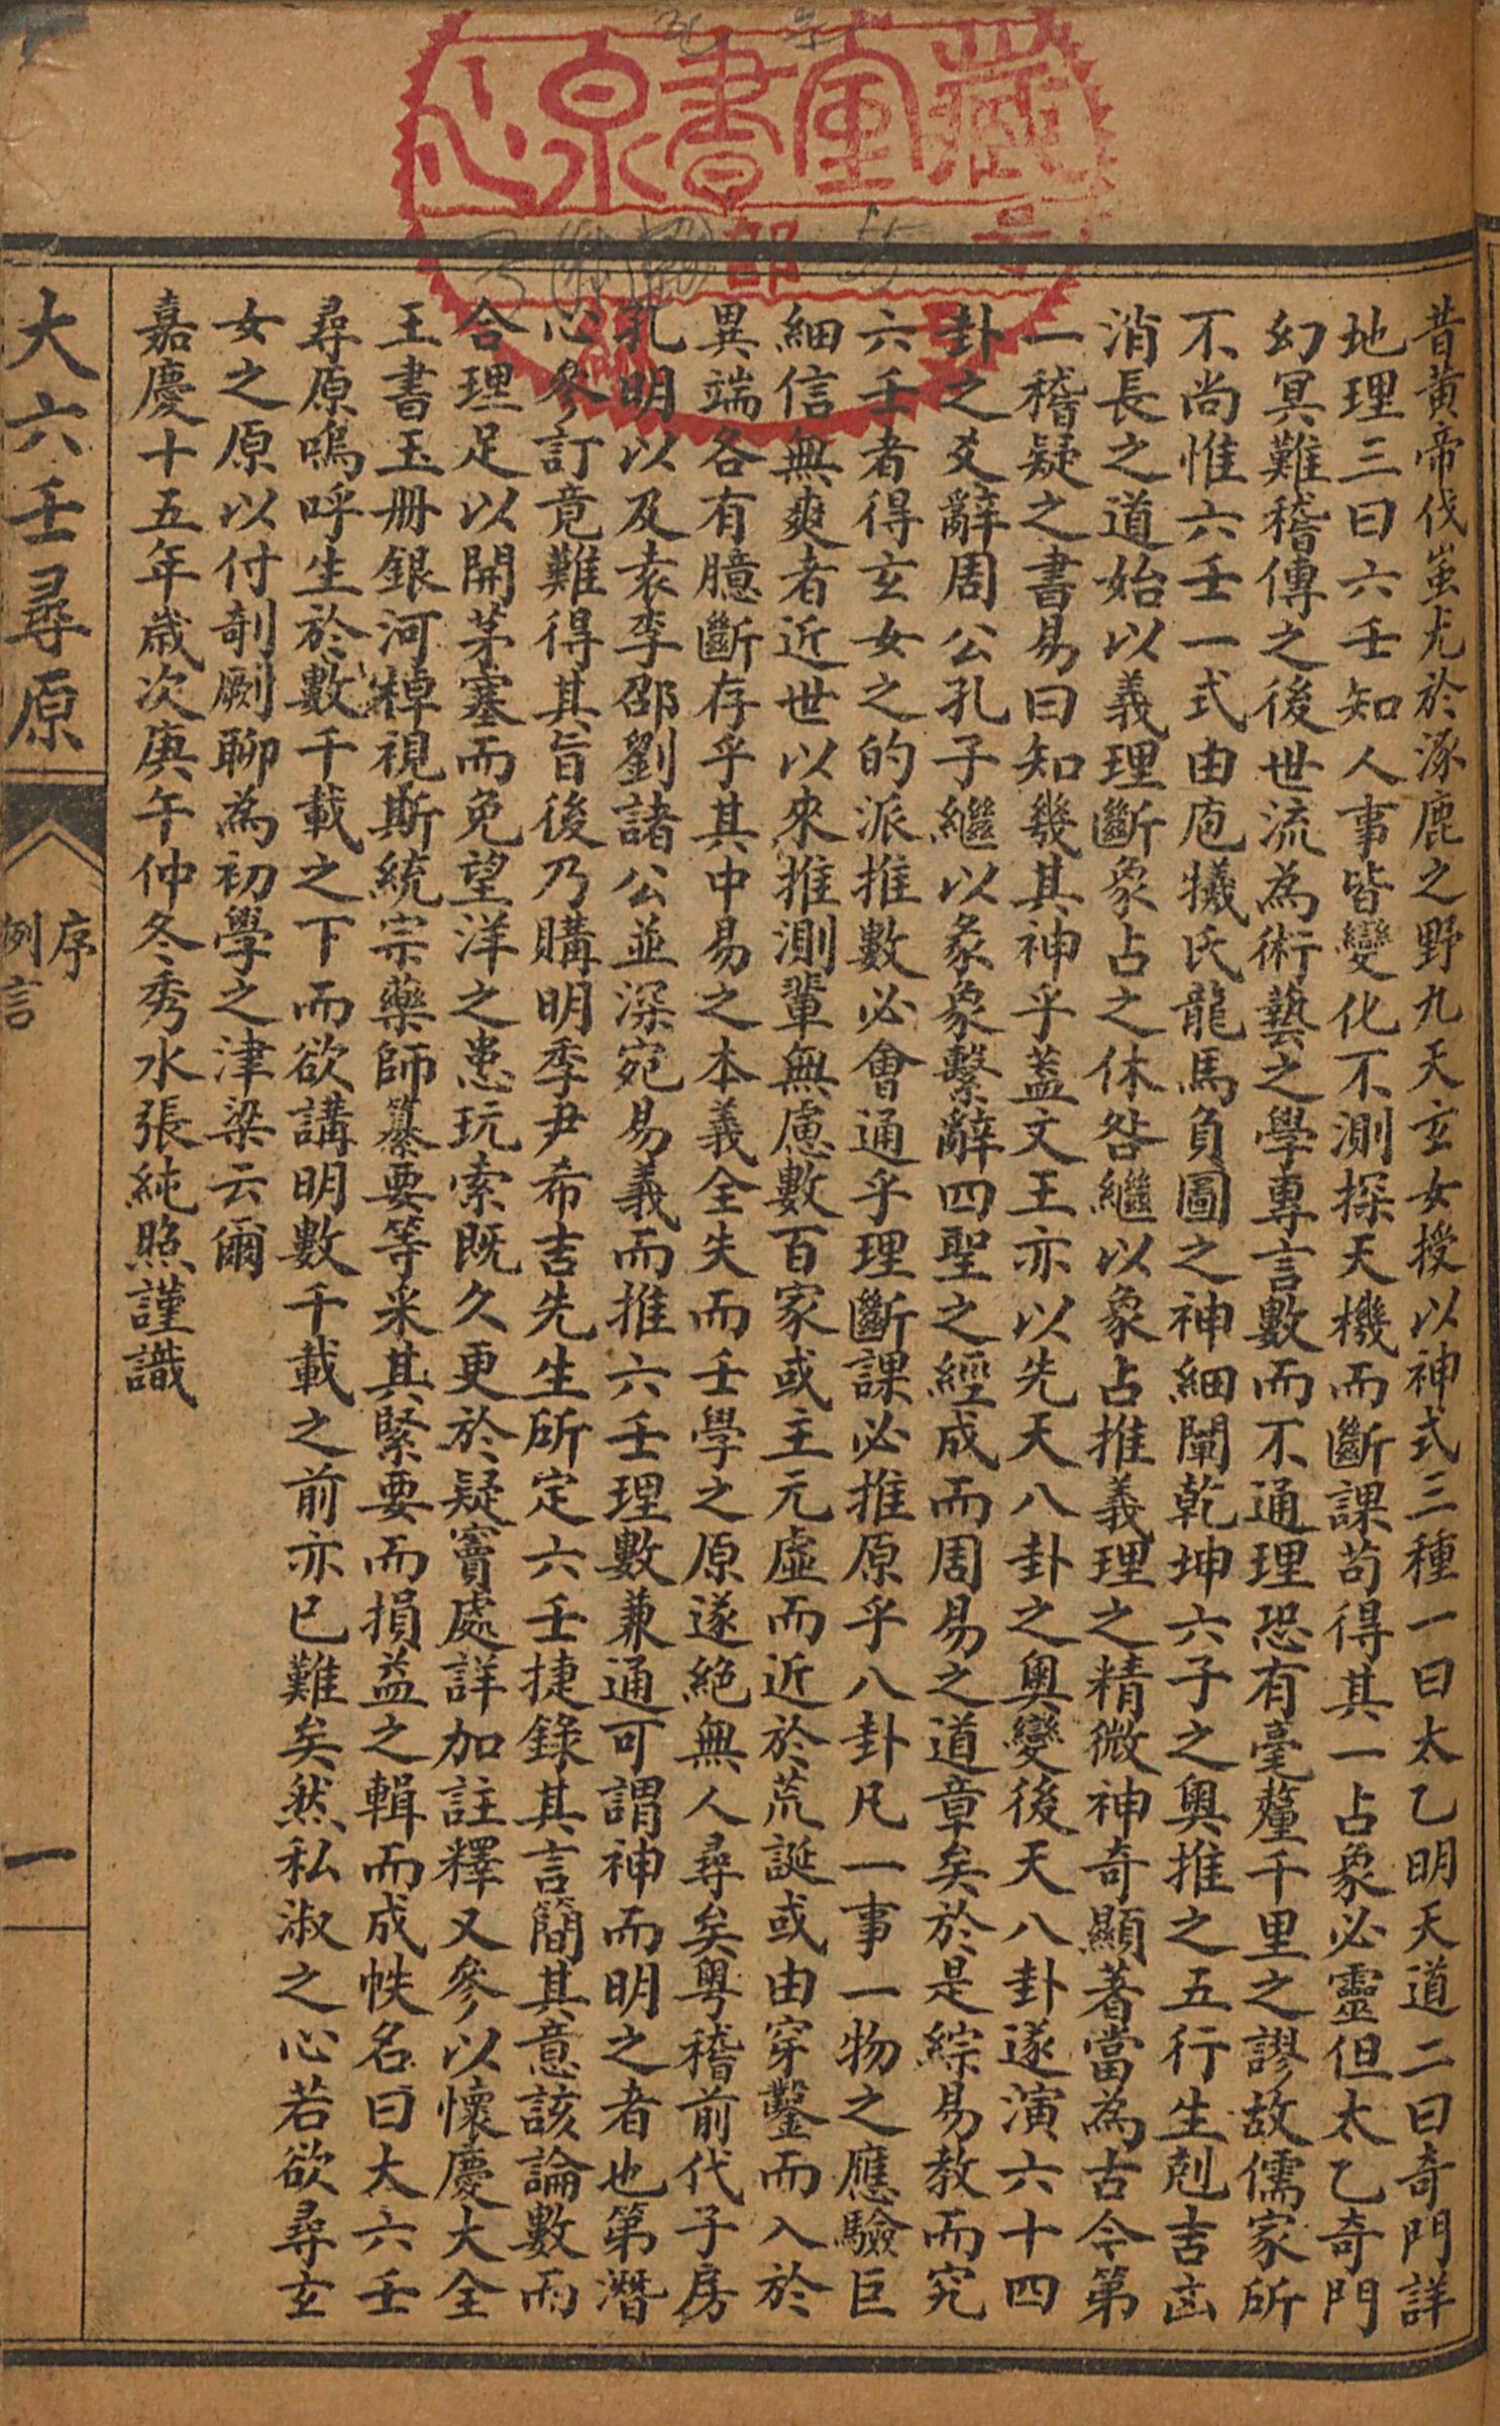 心泉書室藏
部
昔黃帝伐蚩尤於涿鹿之野九天玄女授以神式三種一曰太乙明天道二曰奇門詳
地理三曰六壬知人事皆變化不測探天機而斷課苟得其一占象必靈但太乙奇門
幻冥難稽傳之後世流為術藝之學專言數而不通理恐有毫釐千里之謬故儒家所
不尚惟六壬一式由庖犧氏龍馬負圖之神細闡乾坤六子之奧推之五行生剋吉凶
消長之道始以義理斷象占之休咎繼以象占推義理之精微神奇顯著當為古今第
一稽疑之書易曰知幾其神乎蓋文王亦以先天八卦之奧變後天八卦遂演六十四
卦之爻辭周公孔子繼以彖象繫辭四聖之經成而周易之道章矣於是綜易教而究
六壬者得玄女之的派推數必會通乎理斷課必推原乎八卦凡一事一物之應驗巨
細信無爽者近世以來推測輩無慮數百家或主元虛而近於荒誕或由穿鑿而入於
異端各有臆斷存乎其中易之本義全失而壬學之原遂絕無人尋矣粵稽前代子房
孔明以及袁李邵劉諸公並深宛易義而推六壬理數兼通可謂神而明之者也第潛
心參訂竟難得其旨後乃購明季尹希吉先生所定六壬捷錄其言簡其意該論數而
合理足以開茅塞而免望洋之患玩索既久更於疑竇處詳加註釋又參以懷慶大全
王書玉册銀河棹視斯統宗藥師纂要等采其緊要而損益之輯而成帙名曰大六壬
尋原嗚呼生於數千載之下而欲講明數千載之前亦已難矣然私淑之心若欲尋玄
女之原以付剞劂聊為初學之津梁云爾
嘉慶十五年歲次庚午仲冬秀水張純照謹識
大六壬尋原
序
例言
一